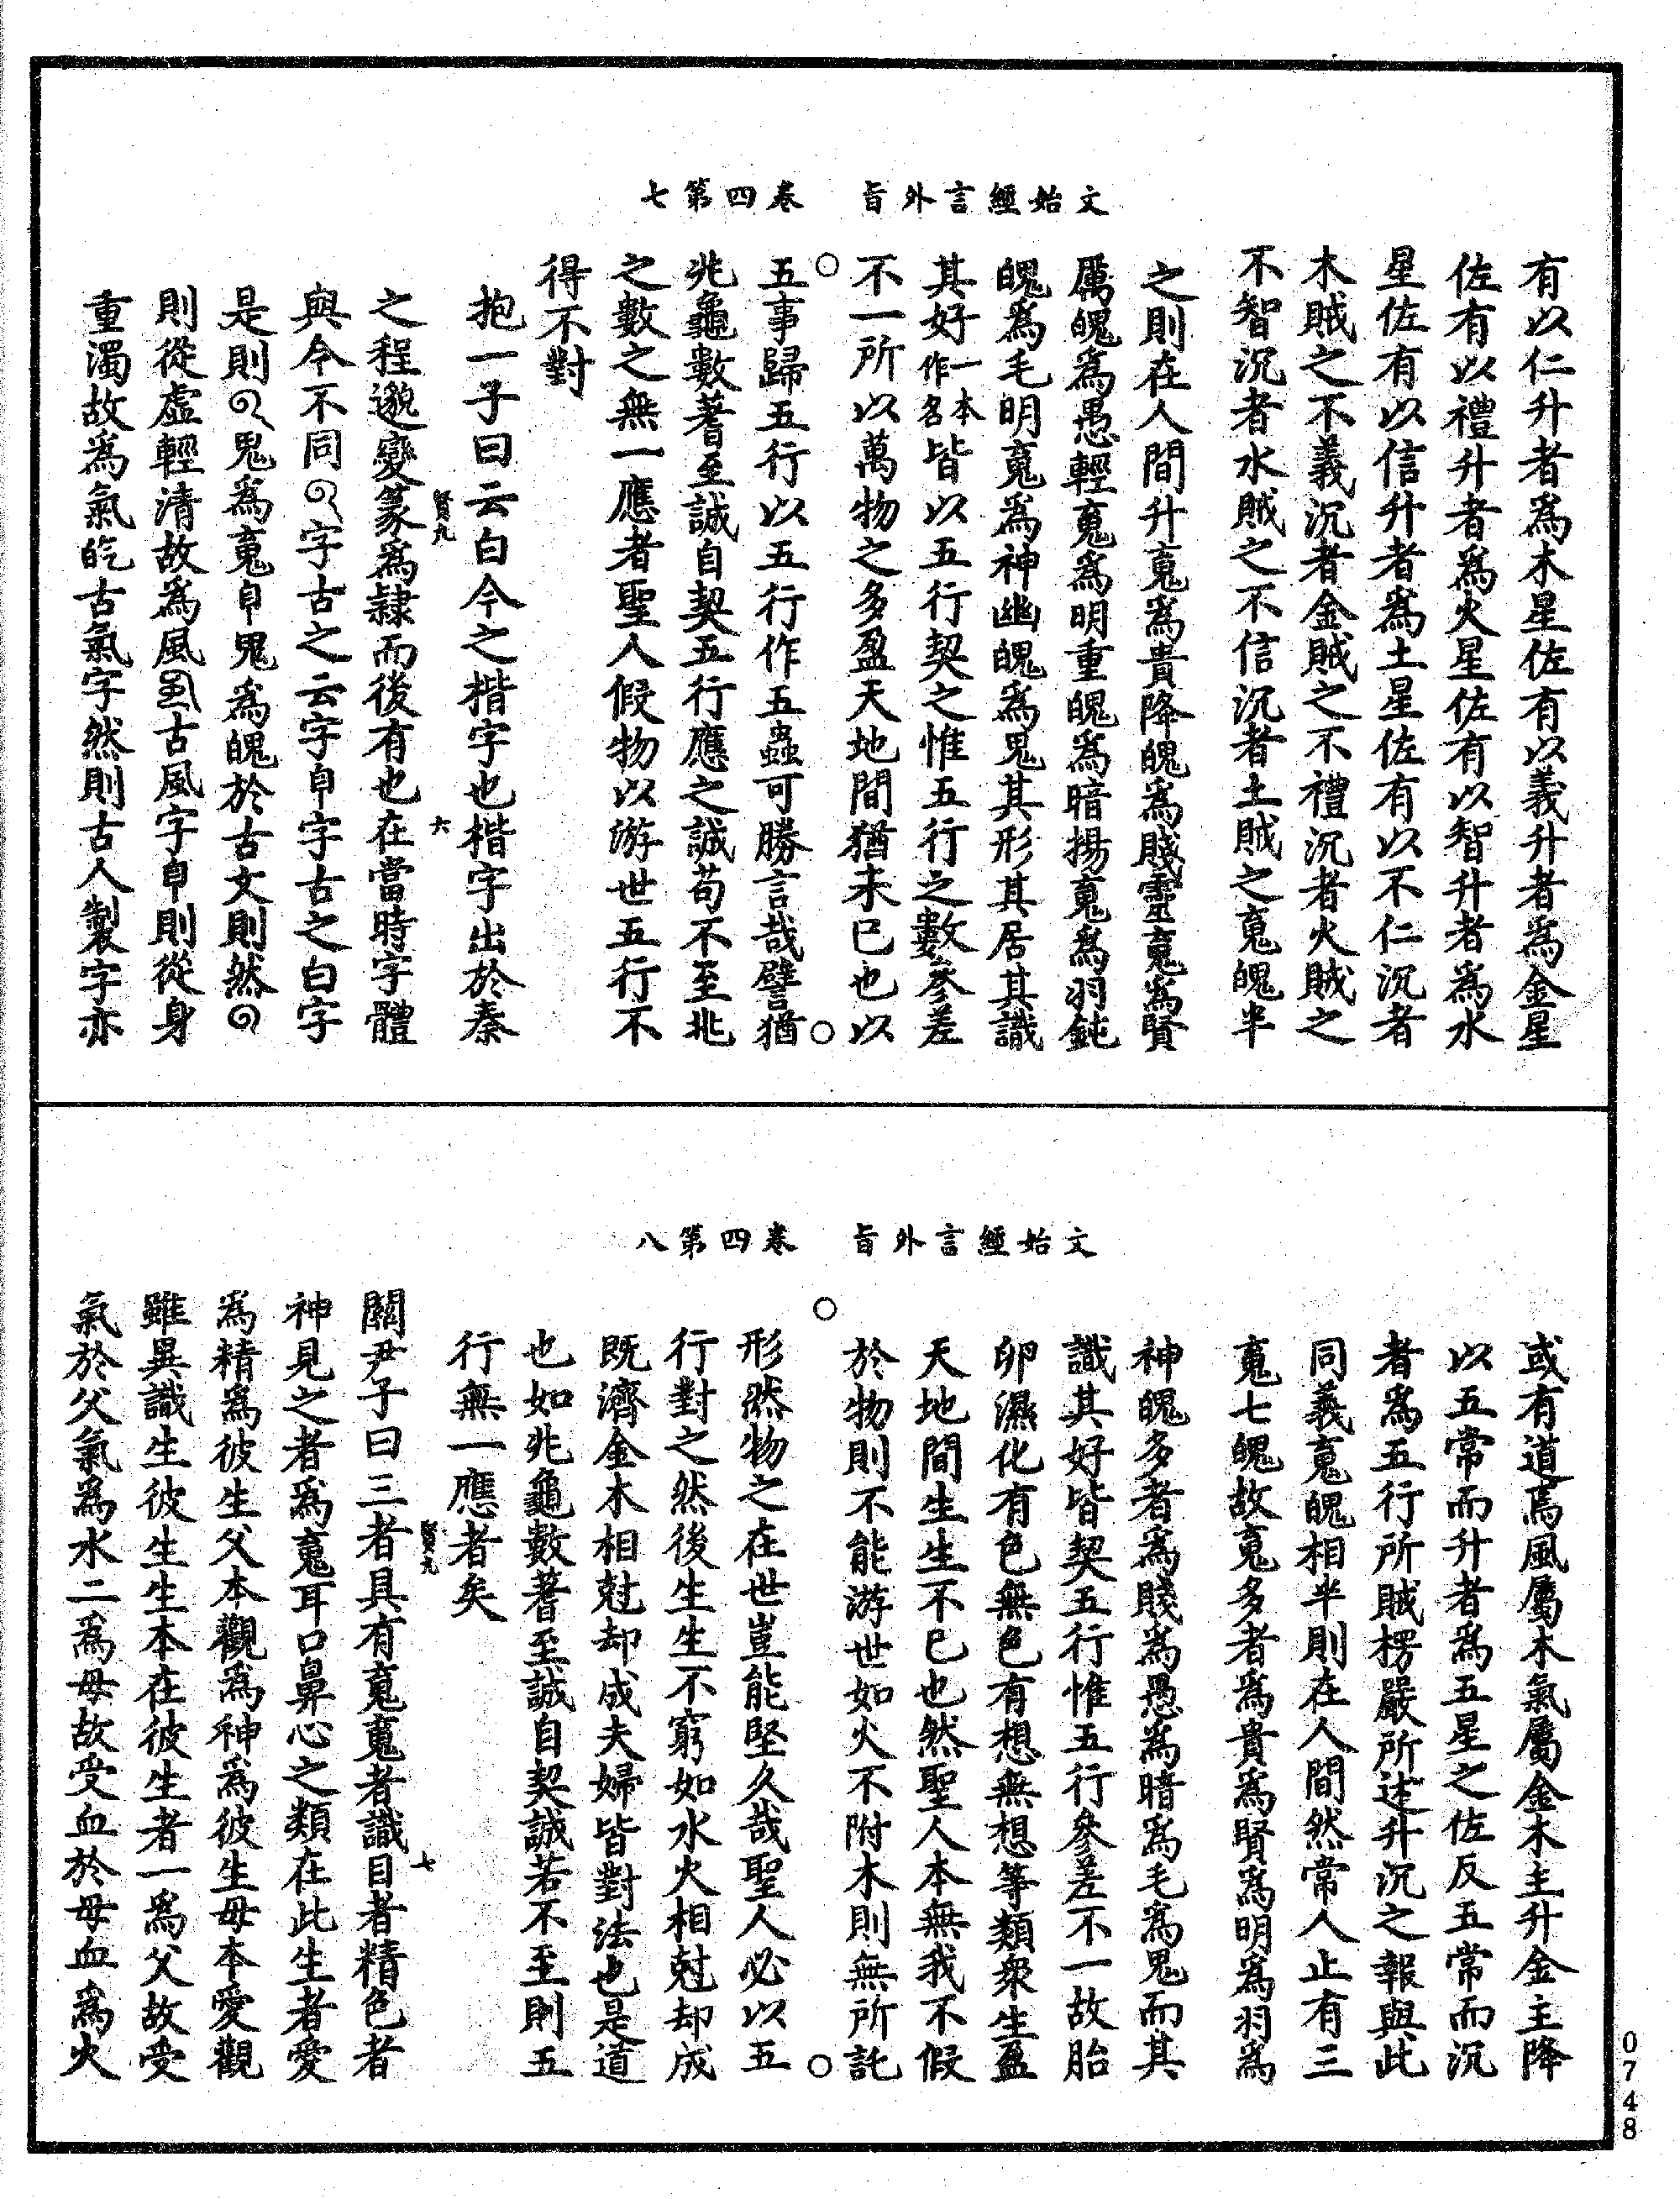 文始經言外旨　卷四第七
有以仁升者爲木星佐有以義升者爲金星
佐有以禮升者爲火星佐有以智升者爲水
星佐有以信升者爲土星佐有以不仁沉者
木賊之不義沉者金賊之不禮沉者火賊之
不智沉者水賊之不信沉者土賊之䰟魄半
之則在人間升䰟爲貴降魄爲賤靈䰟爲賢
厲魄爲愚輕䰟爲明重魄爲暗揚䰟爲羽鈍
魄爲毛明䰟爲神幽魄爲鬼其形其居其識
其好一本作名皆以五行契之惟五行之數參差
不一所以萬物之多盈天地間猶未已也以
○　○
五事歸五行以五行作五蟲可勝言哉譬猶
兆龜數蓍至誠自契五行應之誠苟不至兆
之數之無一應者聖人假物以游世五行不
得不對
抱一子曰云白今之楷字也楷字出於秦
之程邈變篆爲隸而後有也在當時字體
賢九　六
與今不同字古之云字𦣹字古之白字
是則鬼爲䰟𦣹鬼爲魄於古文則然
則從虛輕清故爲風古風字𦣹則從身
重濁故爲氣古氣字然則古人製字亦
文始經言外旨　卷四第八
或有道焉風屬木氣屬金木主升金主降
以五常而升者爲五星之佐反五常而沉
者爲五行所賊楞嚴所述升沉之報與此
同義䰟魄相半則在人間然常人止有三
䰟七魄故䰟多者爲貴爲賢爲明爲羽爲
神魄多者爲賤爲愚爲暗爲毛爲鬼而其
識其好皆契五行惟五行參差不一故胎
卵濕化有色無色有想無想等類衆生盈
天地間生生不已也然聖人本無我不假
於物則不能游世如火不附木則無所託
○　○
形然物之在世豈能堅久哉聖人必以五
行對之然後生生不窮如水火相尅却成
既濟金木相尅却成夫婦皆對法也是道
也如兆龜數蓍至誠自契誠若不至則五
行無一應者矣
賢九　七
關尹子曰三者具有䰟䰟者識目者精色者
神見之者爲䰟耳口鼻心之類在此生者愛
爲精爲彼生父本觀爲神爲彼生母本愛觀
雖異識生彼生生本在彼生者一爲父故受
氣於父氣爲水二爲母故受血於母血爲火
0748